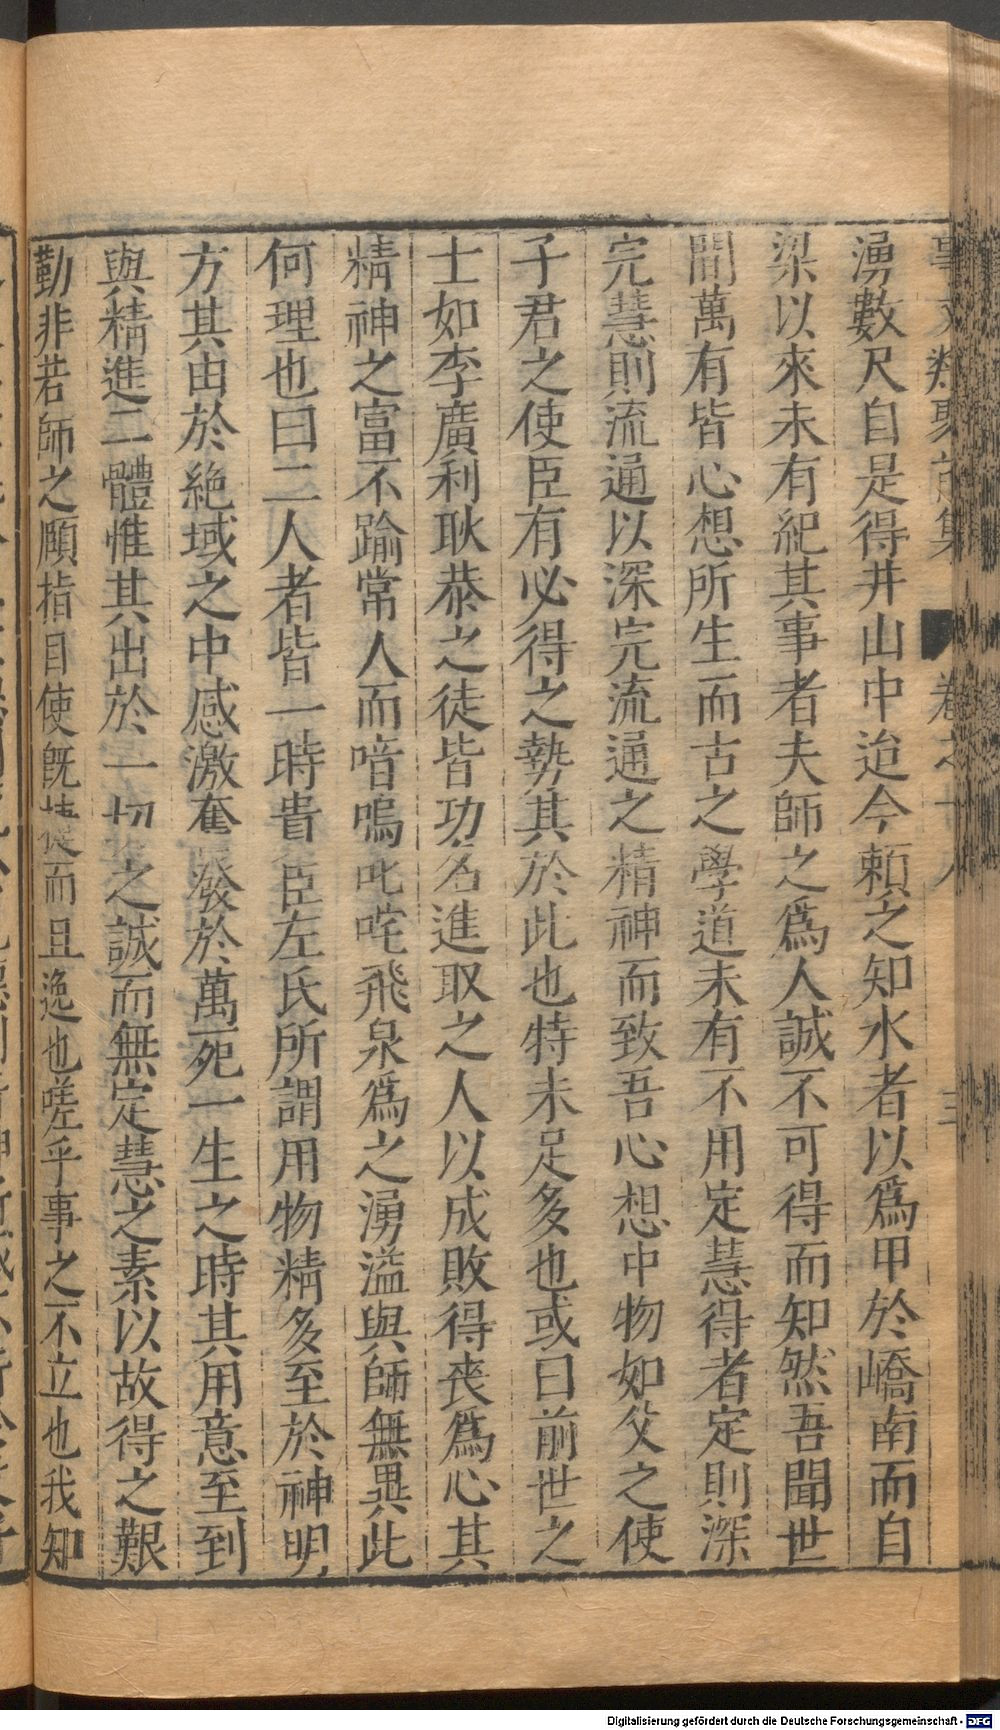 事文類聚前集　卷之十八　三
湧數尺自是得井山中迨今頼之知水者以爲甲於嶠南而自
梁以來未有紀其事者夫師之爲人誠不可得而知然吾聞世
間萬有皆心想所生而古之學道未有不用定慧得者定則深
完慧則流通以深完流通之精神而致吾心想中物如父之使
子君之使臣有必得之勢其於此也特未足多也或曰前世之
士如李廣利耿恭之徒皆功名進取之人以成敗得喪爲心其
精神之富不踰常人而喑嗚叱咤飛泉爲之湧溢與師無異此
何理也曰二人者皆一時貴臣左氏所謂用物精多至於神明
方其由於絶域之中感激奮發於萬死一生之時其用意至到
與精進二體惟其出於一切之誠而無定慧之素以故得之艱
勤非若師之頤指目使旣捷而且逸也嗟乎事之不立也我知
Digitalisierung gefördert durch die Deutsche Forschungsgemeinschaft - DFG